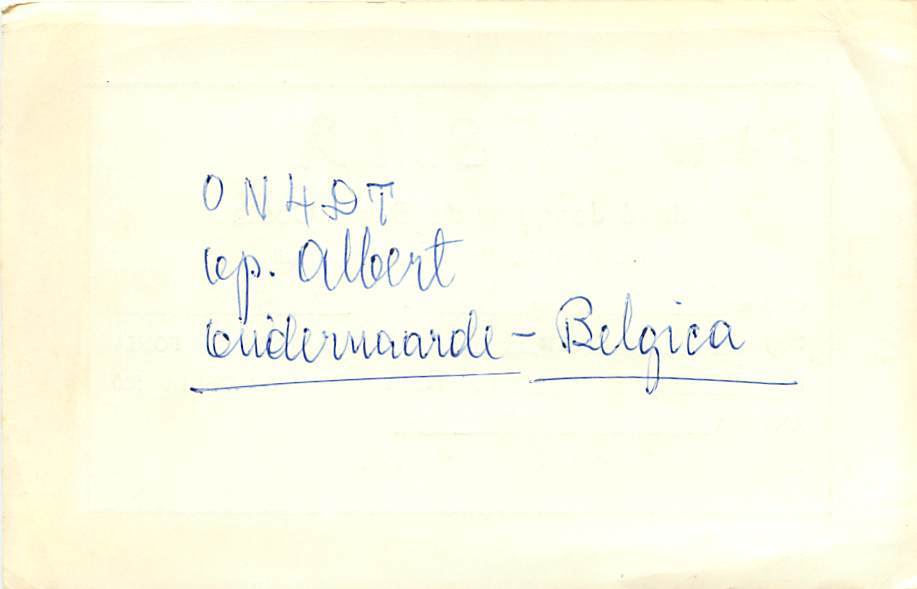 ON4DT
op. Albert
Oudernaarde - Belgica